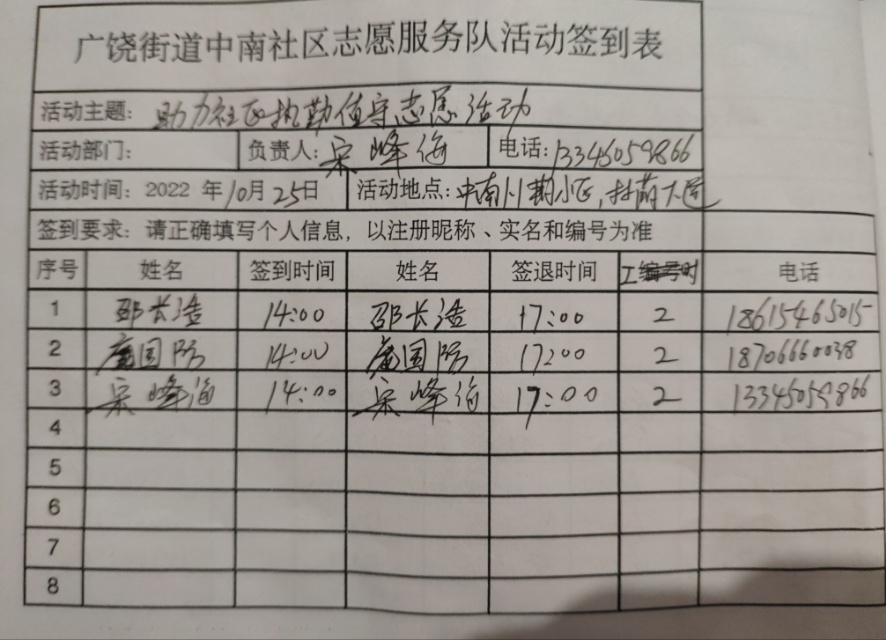 广饶街道中南社区志愿服务队活动签到表
活动主题: 助力社区执勤值守志愿活动
活动部门: 负责人: 宋峰海 电话: 13345059866
活动时间: 2022 年10月25日 活动地点: 中南川期小区,
签到要求: 请正确填写个人信息, 以注册昵称、实名和编号为准
序号 姓名 签到时间 姓名 签退时间 工时 电话
1 邵长浩 14:00 邵长浩 17:00 2 18615465015
2 国防 14:00 国防 17:00 2 18706660038
3 宋峰海 14:00 宋峰海 17:00 2 13345059866
4
5
6
7
8